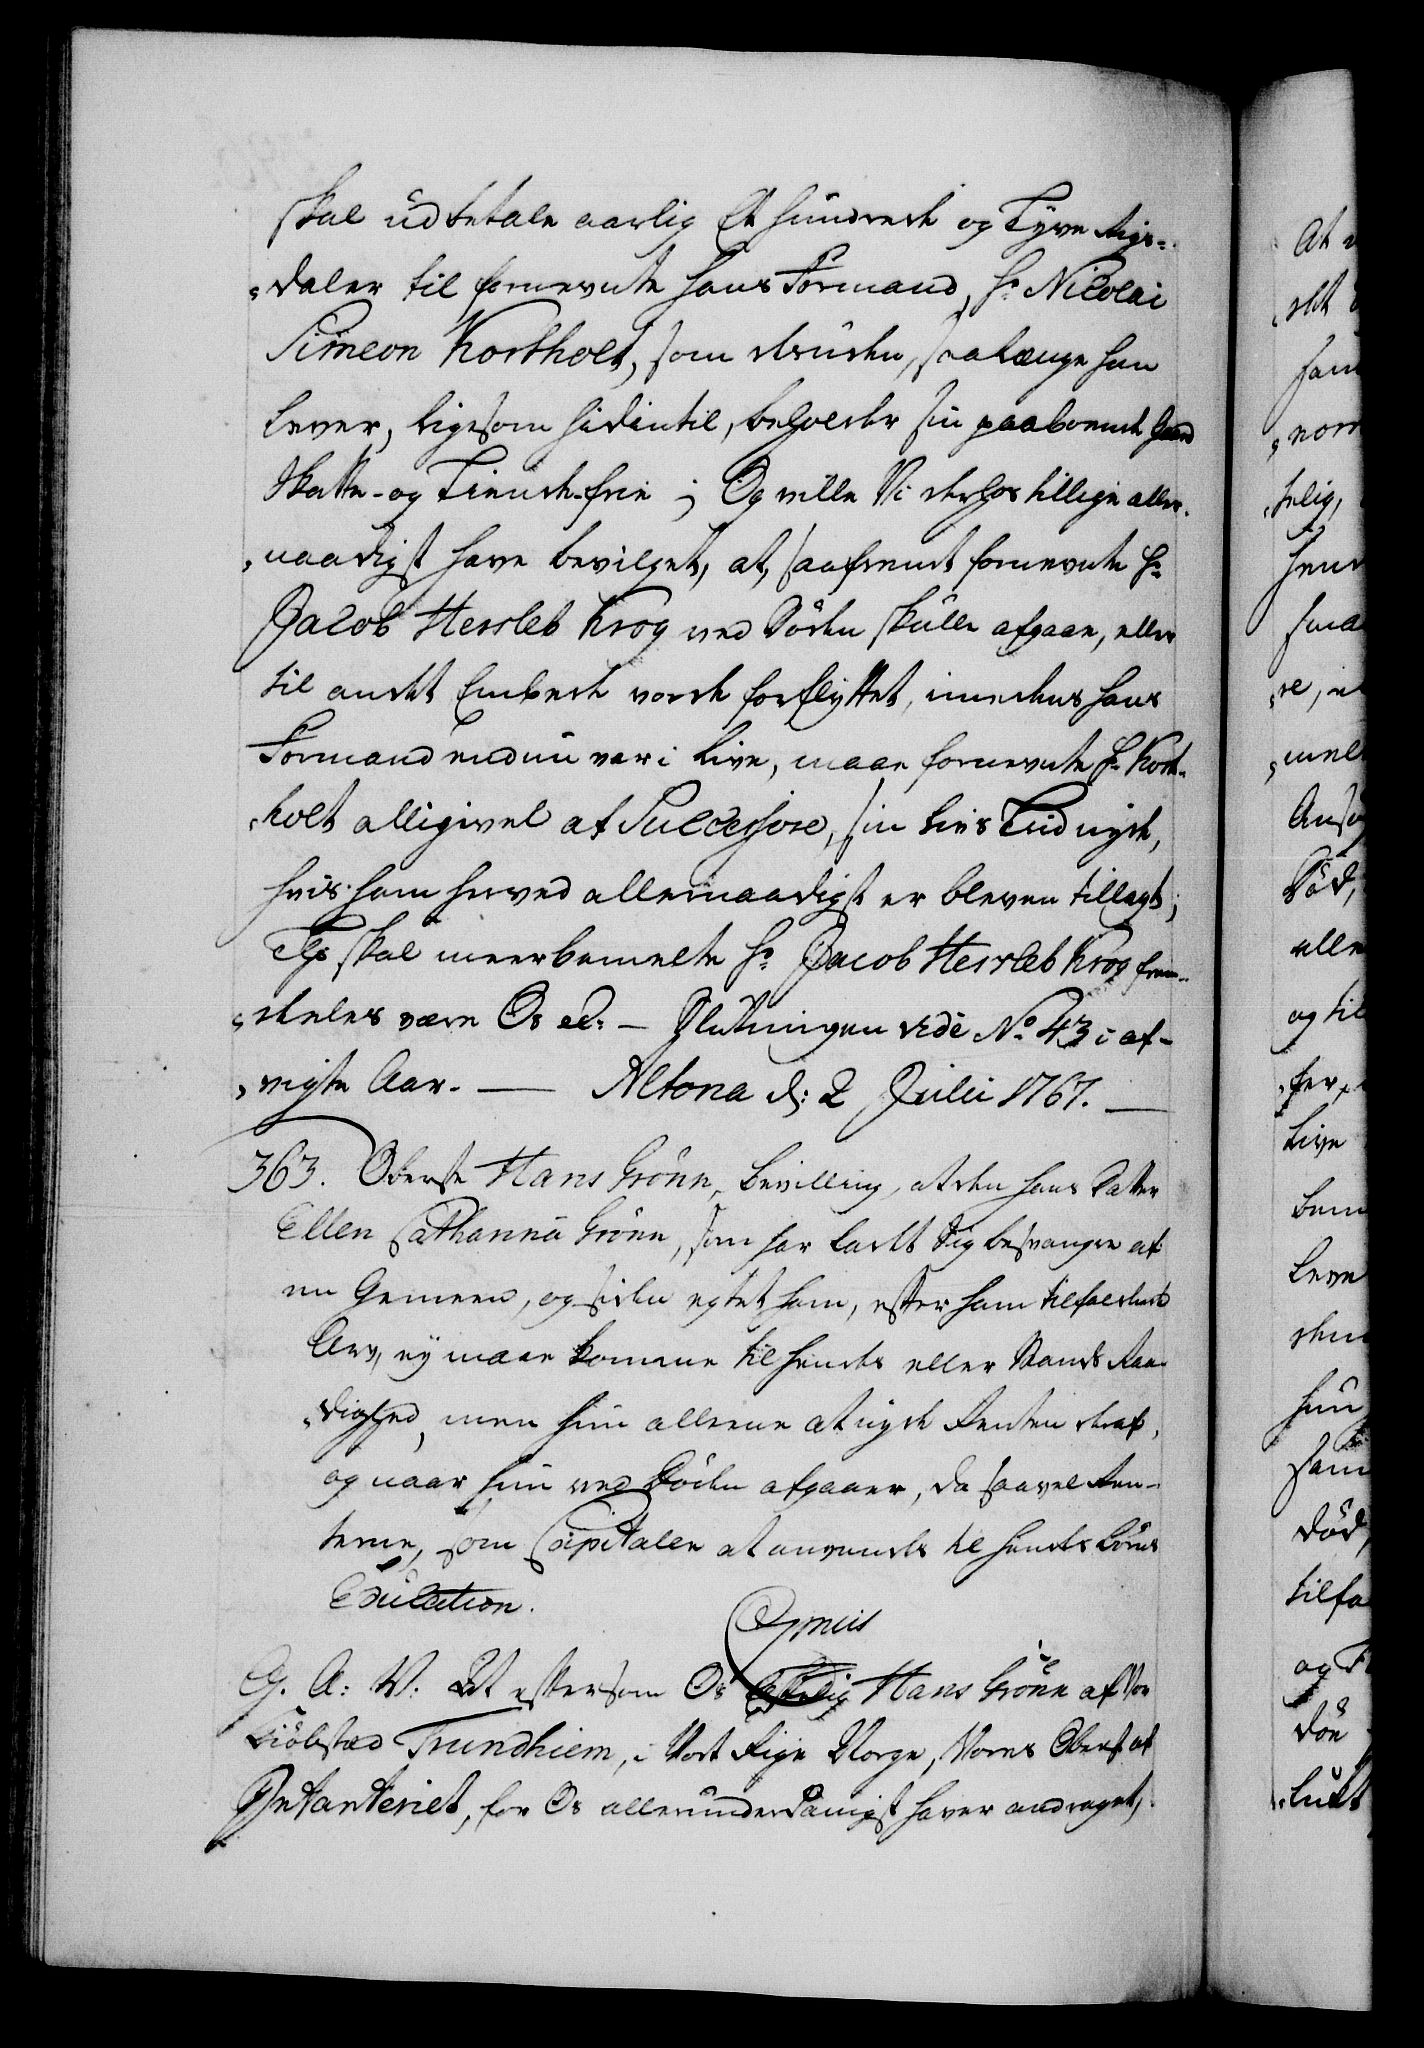 skal udbetale aarlig Et hundrede og Tyve Rigs-
daler til fornevnte hans Formand, Hr. Nicolai
Simeon Kortholt, som desuden, saalænge han
lever, ligesom hidindtil, beholder sin paaboende Gaard
Skatte- og Tiende-frie; Og ville Vi derhos tillige aller-
naadigst have bevilget, at, saafremt fornevnte Hr.
Jacob Hersleb Krog ved Døden skulle afgaae, eller
til andet Embede vorde forflyttet, imedens hans
Formand endnu var i Live, maae fornevnte Hr. Kort-
holt alligevel af Successore, sin Livs Tiid nyde,
hvis ham herved allernaadigst er bleven tillagt;
Thj skal meerbemelte Hr. Jacob Hersleb Krog frem-
deles være Os ec: — Slutningen vide No. 43 i af-
vigte Aar. — Altona d: 2 Julii 1767. —
363. Oberste Hans Grønn, Bevilling, at den hans Datter
Ellen Cathanna Grönn, som har ladet sig besvangre af
en Gemeen, og siden egtet ham, efter ham tilfaldende
Arv, ey maae komme til hendes eller Mands Raa-
dighed, men hun alleene at nyde Renten deraf,
og naar hun ved Døden afgaaer, da saavel Ren-
terne, som Capitalen at anvendes til hendes Børns
Education.
G. A: V: At eftersom Os Hans Grönn af Vor
Kiöbstæd Trundhiem, i Vort Rige Norge, Vores Oberst af
Infanteriet, for Os allerunderdanigst haver andraget,
At
hun
nor
selig,
hend
smaa
Død,
alle
og til
Live
bem
Leve
hun
sam
død,
tilfa
døe